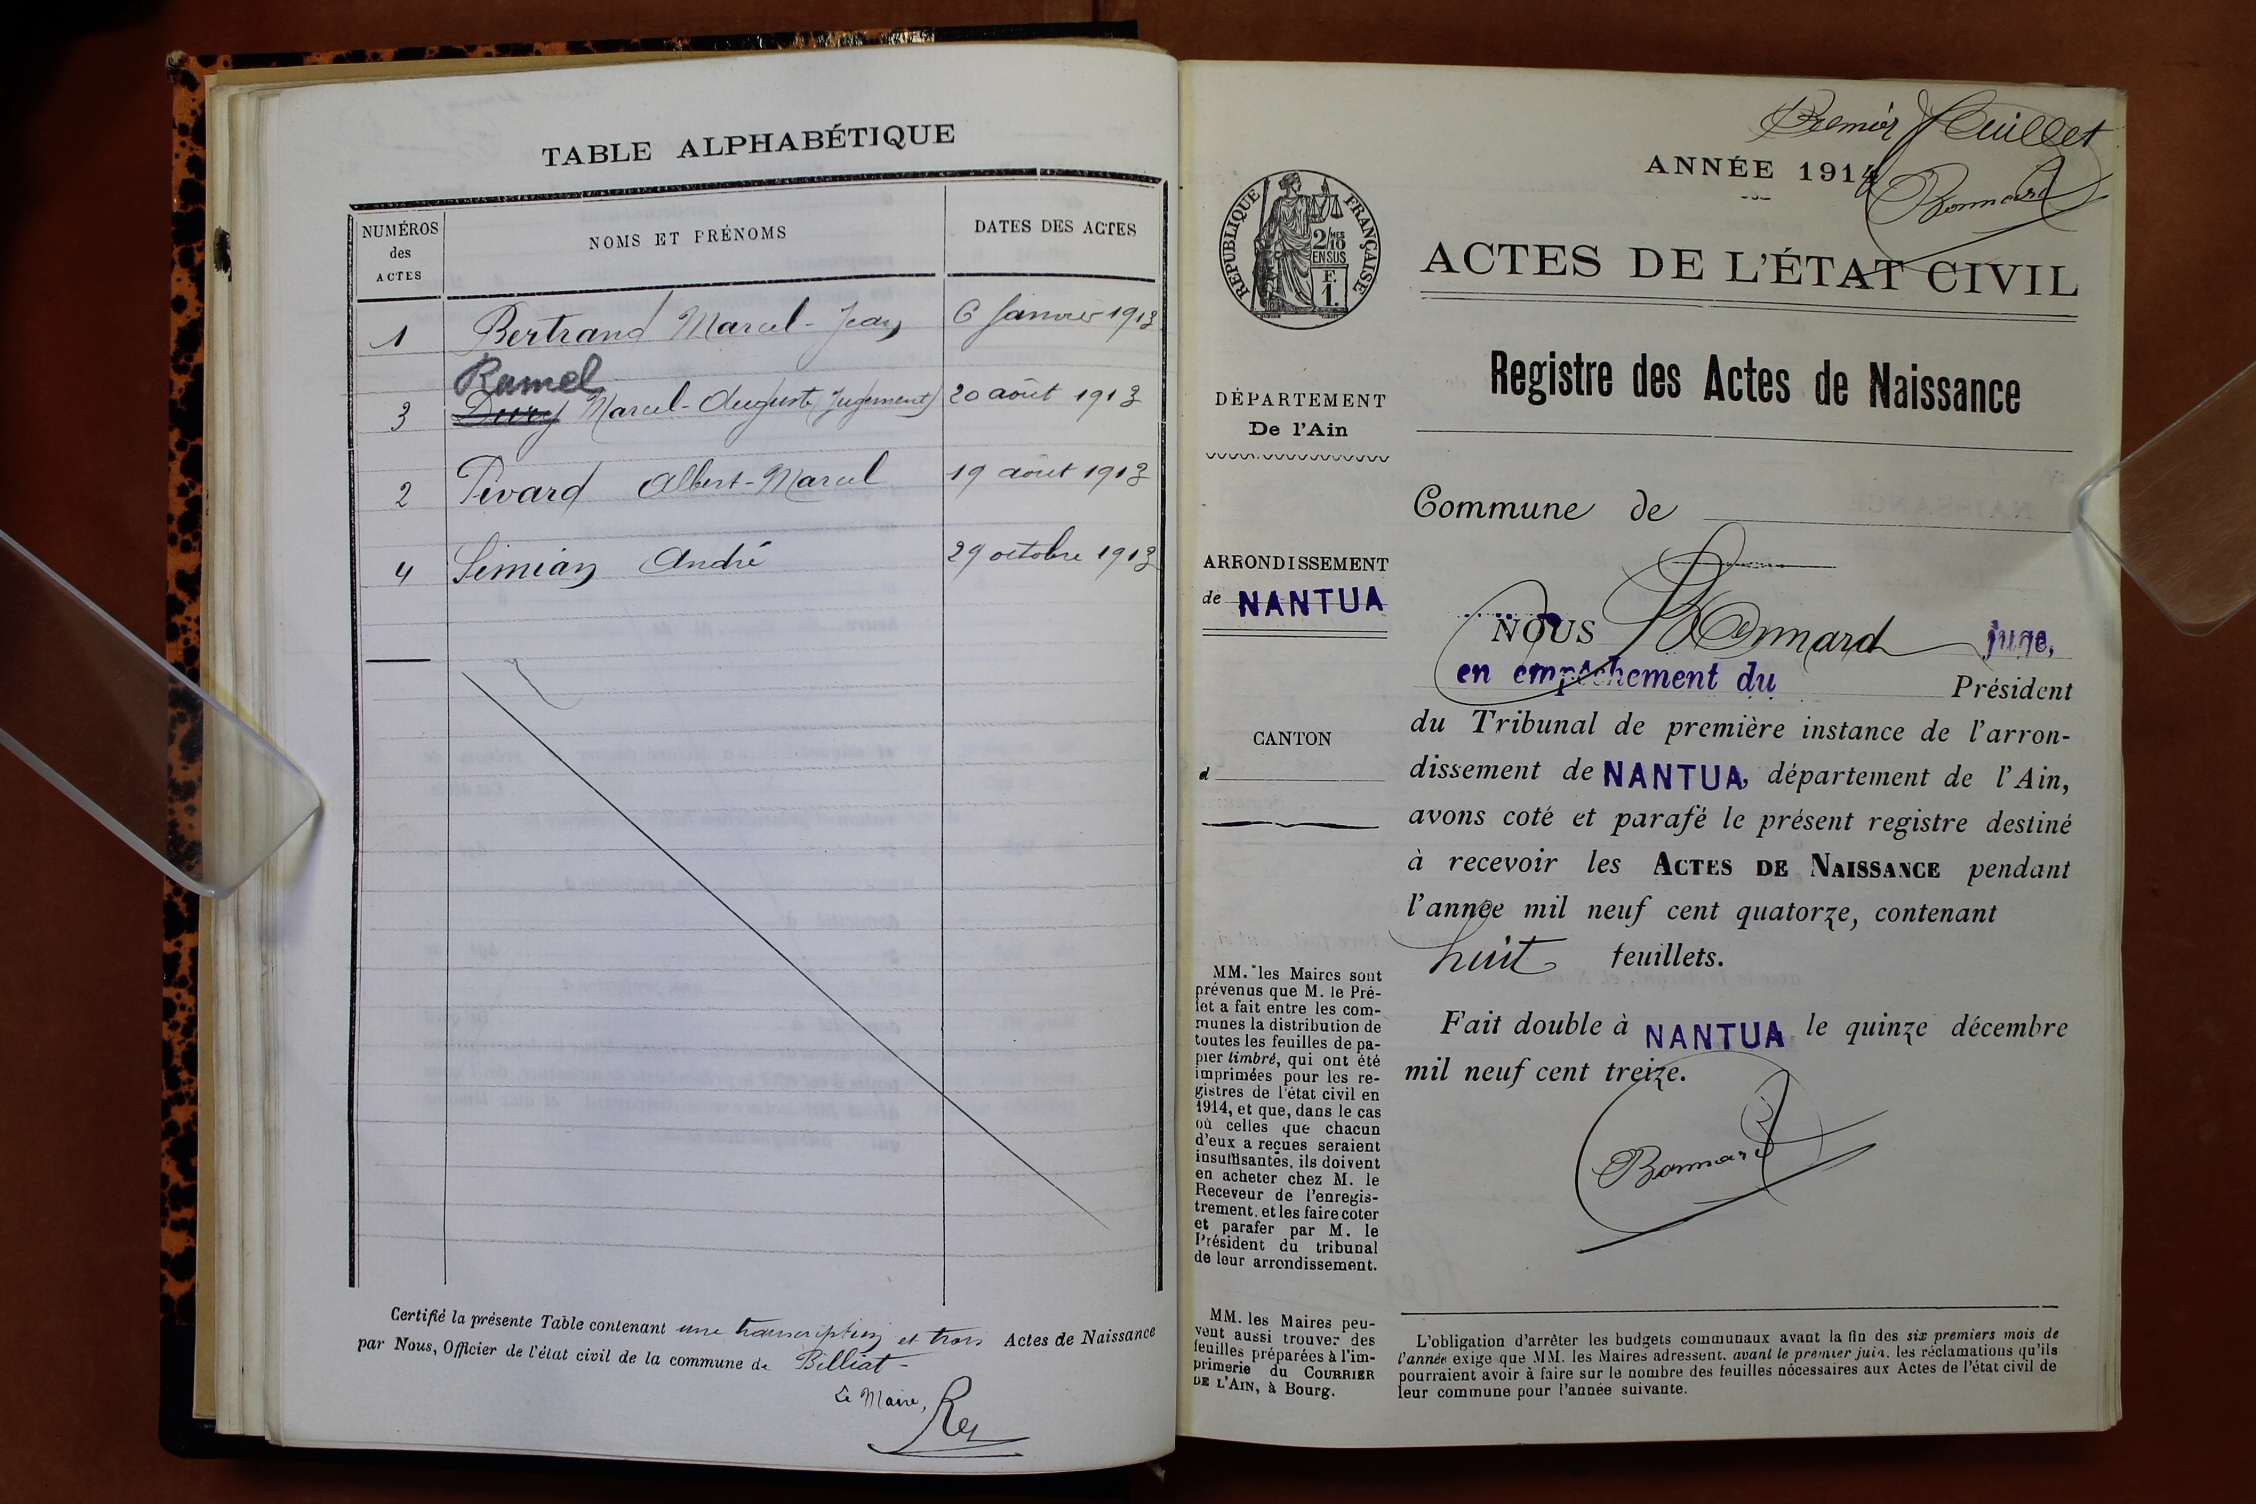 TABLE ALPHABÉTIQUE
NUMÉROS des ACTES
NOMS ET PRÉNOMS
DATES DES ACTES
1 Bertrand Marcel-Jean 6 Janvier 1913
Ramel
3 Marcel-Auguste (Jugement) 20 août 1913
2 Pivard Albert-Marcel 19 août 1913
4 Simian André 29 octobre 1913
Certifié la présente Table contenant une transcription et trois Actes de Naissance
par Nous, Officier de l'état civil de la commune de Billiat
Le Maire,
Rey
Premier Feuillet
Bonnard
ANNÉE 1914
RÉPUBLIQUE FRANÇAISE
2/10 MES
EN SUS
F.
1.
ACTES DE L'ÉTAT CIVIL
Registre des Actes de Naissance
DÉPARTEMENT
De l'Ain
Commune de
ARRONDISSEMENT
de NANTUA
CANTON
d
NOUS Bonnard juge,
en empêchement du Président
du Tribunal de première instance de l'arron-
dissement de NANTUA, département de l'Ain,
avons coté et parafé le présent registre destiné
à recevoir les ACTES DE NAISSANCE pendant
l'année mil neuf cent quatorze, contenant
huit feuillets.
Fait double à NANTUA le quinze décembre
mil neuf cent treize.
Bonnard
MM. les Maires sont
prévenus que M. le Pré-
fet a fait entre les com-
munes la distribution de
toutes les feuilles de pa-
pier timbré, qui ont été
imprimées pour les re-
gistres de l'état civil en
1914, et que, dans le cas
où celles que chacun
d'eux a reçues seraient
insuffisantes, ils doivent
en acheter chez M. le
Receveur de l'enregis-
trement, et les faire coter
et parafer par M. le
Président du tribunal
de leur arrondissement.
MM. les Maires peu-
vent aussi trouver des
feuilles préparées à l'im-
primerie du COURRIER
DE L'AIN, à Bourg.
L'obligation d'arrêter les budgets communaux avant la fin des six premiers mois de
l'année exige que MM. les Maires adressent, avant le premier juin, les réclamations qu'ils
pourraient avoir à faire sur le nombre des feuilles nécessaires aux Actes de l'état civil de
leur commune pour l'année suivante.